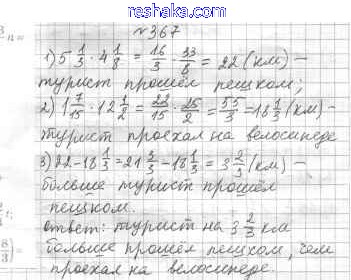 reshaka.com
№367
1) 5 1/3 · 4 1/8 = 16/3 · 33/8 = 22 (км) –
турист прошёл пешком;
2) 1 7/15 · 12 1/2 = 22/15 · 25/2 = 55/3 = 18 1/3 (км) –
турист проехал на велосипеде
3) 22 - 18 1/3 = 21 3/3 - 18 1/3 = 3 2/3 (км) –
больше турист прошёл
пешком.
Ответ: турист на 3 2/3 км
больше прошёл пешком, чем
проехал на велосипеде.